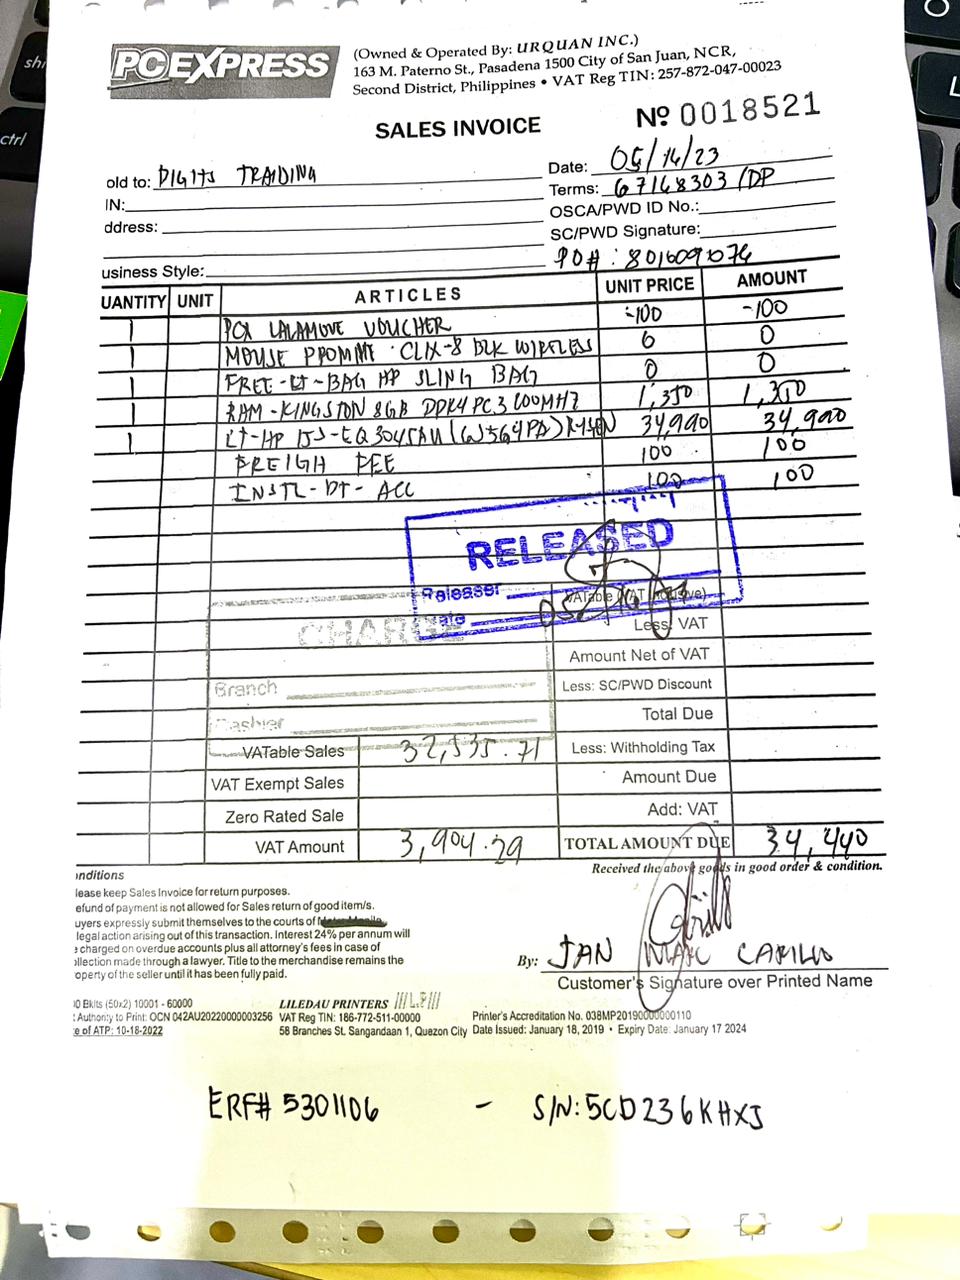 PCEXPRESS
(Owned & Operated By: URQUAN INC.)
163 M. Paterno St., Pasadena 1500 City of San Juan, NCR,
Second District, Philippines • VAT Reg TIN: 257-872-047-00023
SALES INVOICE
Nº 0018521
old to: DIGITS TRADING
Date: 05/16/23
IN:
Terms: 67168303 /DP
ddress:
OSCA/PWD ID No.:
SC/PWD Signature:
PO#: 8016091076
usiness Style:
UANTITY UNIT ARTICLES UNIT PRICE AMOUNT
1 PCX LALAMOVE VOUCHER -100 -100
1 MOUSE PROMMT CLIX-8 BLK WIRELESS 0 0
1 FREE-LT-BAG HP SLING BAG 0 0
1 RAM-KINGSTON 8GB DDR4 PC3200MHZ 1,350 1,350
1 LT-HP 15S-EQ3045AU (6J564PA) RYSEN 34,990 34,990
FREIGH FEE 100 100
INSTL-DT-ACC 100 100
RELEASED
Releaser
CHARGE
VATable (VAT Inclusive)
Less: VAT
Amount Net of VAT
Branch
Less: SC/PWD Discount
Cashier
Total Due
VATable Sales 32,535.71 Less: Withholding Tax
VAT Exempt Sales Amount Due
Zero Rated Sale Add: VAT
VAT Amount 3,904.29 TOTAL AMOUNT DUE 34,440
Received the above goods in good order & condition.
nditions
lease keep Sales Invoice for return purposes.
efund of payment is not allowed for Sales return of good item/s.
uyers expressly submit themselves to the courts of
legal action arising out of this transaction. Interest 24% per annum will
charged on overdue accounts plus all attorney's fees in case of
ollection made through a lawyer. Title to the merchandise remains the
operty of the seller until it has been fully paid.
By: JAN MARC CARILLO
Customer's Signature over Printed Name
0 Bkits (50x2) 10001 - 60000
Authority to Print: OCN 042AU20220000003256
e of ATP: 10-18-2022
LILEDAU PRINTERS
VAT Reg TIN: 186-772-511-00000
58 Branches St. Sangandaan 1, Quezon City
Printer's Accreditation No. 038MP20190000000110
Date Issued: January 18, 2019 • Expiry Date: January 17 2024
ERF# 5301106 - S/N: 5CD236KHXJ